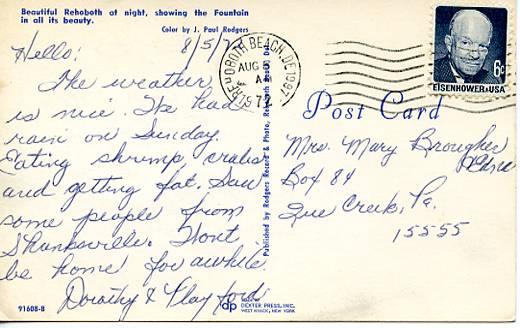 Beautiful Rehoboth at night, showing the Fountain
in all its beauty.
Color by J. Paul Rodgers
8/5/7
Hello!
The weather
is nice. We had
rain on Sunday.
Eating shrimp, crabs
and getting fat. Saw
some people from
Shanksville. Wont
be home for awhile.
Dorothy &
91608-B
Published by Rodgers Record & Photo, Rehoboth Beach, Del.
REHOBOTH BEACH, DE 1997
AUG 5
A
197
6¢
EISENHOWER · USA
Post Card
Mrs. Mary Brougher
Box 84
Que Creek, Pa.
15555
dp
DEXTER PRESS, INC.
WEST NYACK, NEW YORK